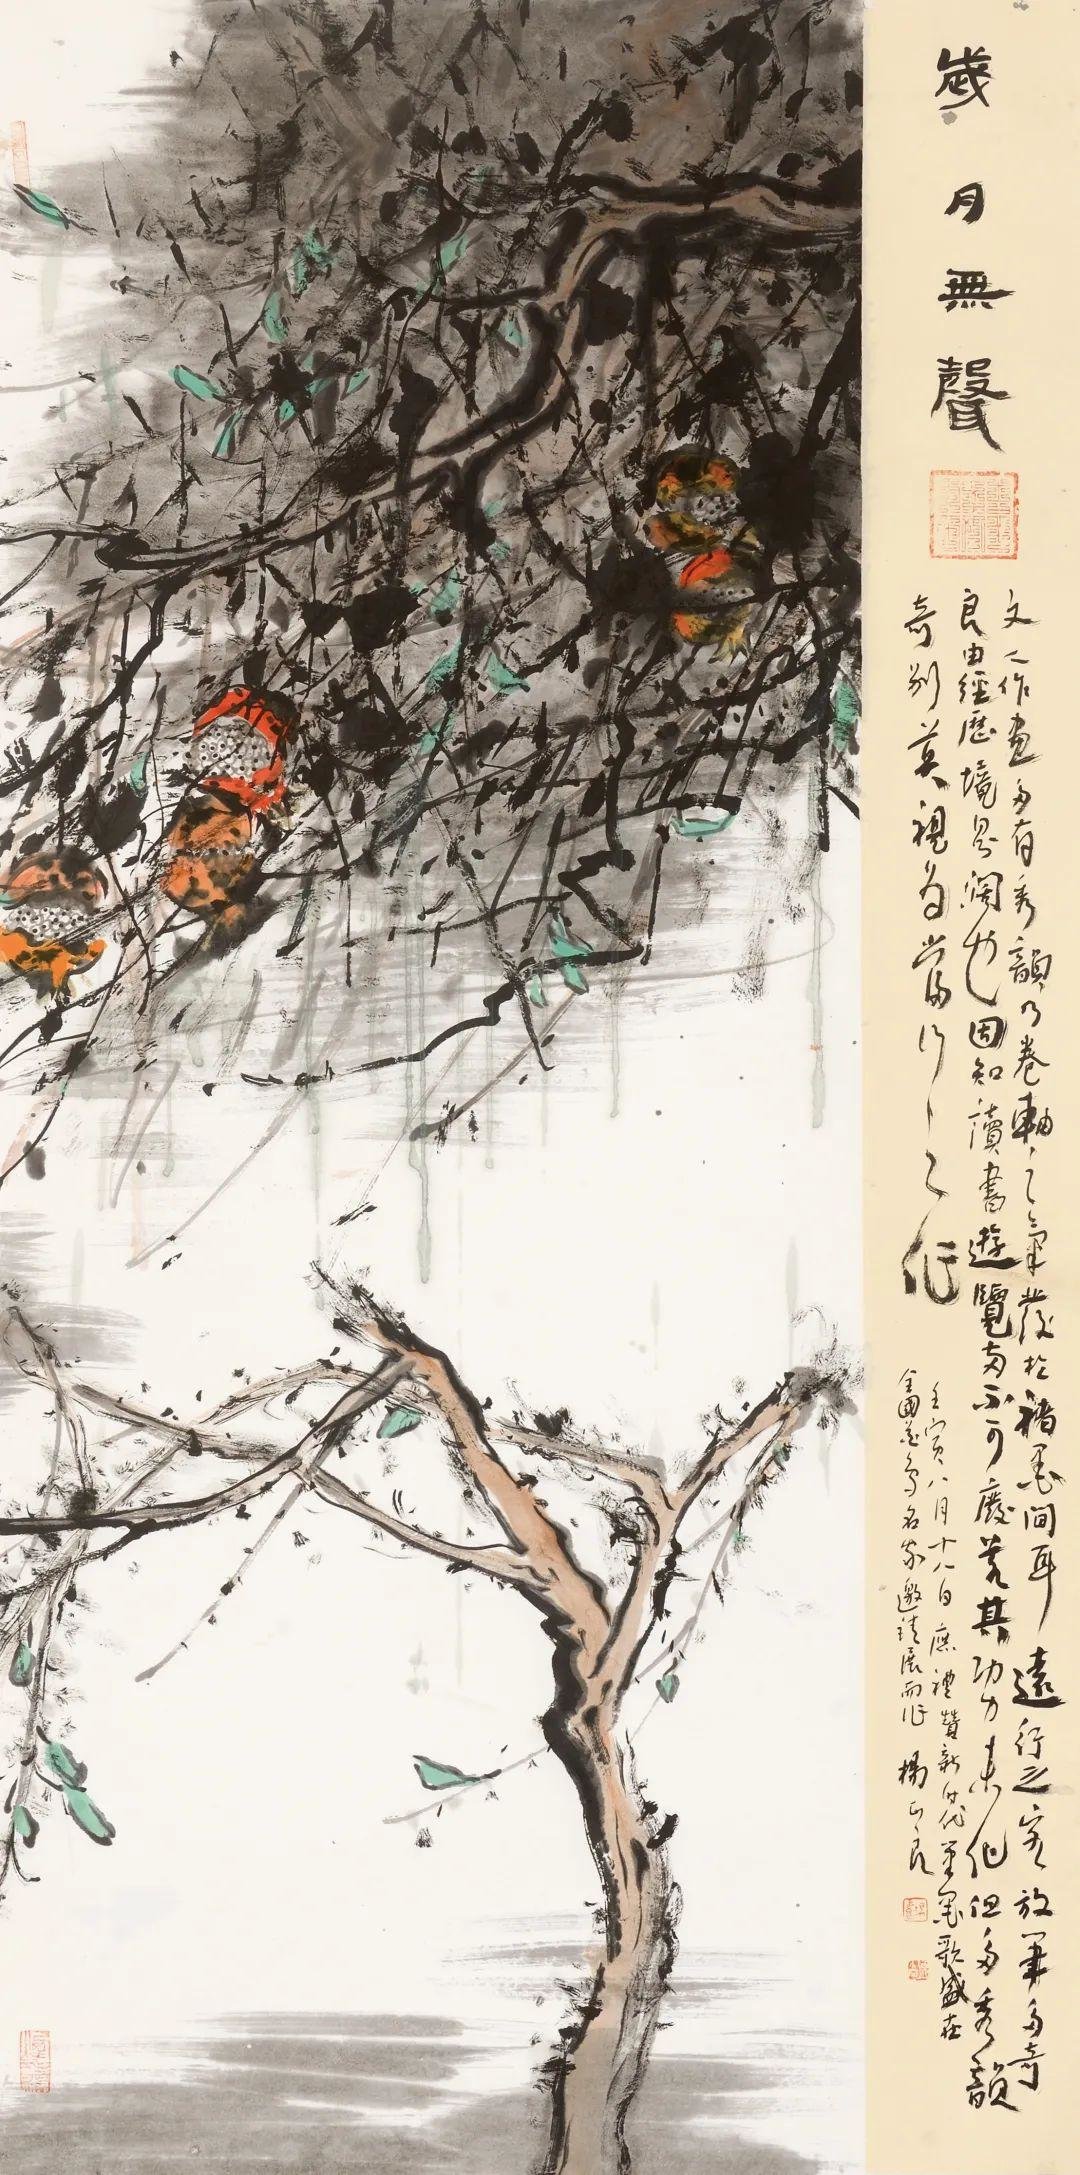 歲月無聲
文人作畫多有秀韻乃卷軸之氣發於楮墨間耳遠行之客放筆多奇
良由經歷境界闊也因知讀書遊覽兩不可廢荒其功力未化但多秀韻
奇別莫視為當行之作
壬寅八月十八日應禮贊新時代筆墨歌盛世
全國花鳥名家邀請展而作 楊正良